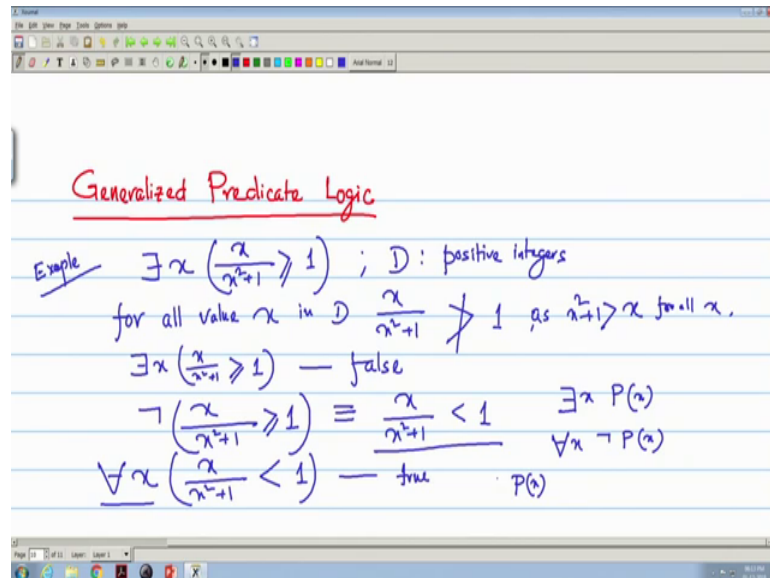 Journal
File Edit View Page Tools Options Help
Arial Normal 12
Generalized Predicate Logic
Exaple ∃x (x/(x²+1) ⩾ 1) ; D : positive integers
for all value x in D x/(x²+1) ≯ 1 as x²+1 > x for all x.
∃x (x/(x²+1) ⩾ 1) — false
¬(x/(x²+1) ⩾ 1) ≡ x/(x²+1) < 1 ∃x P(x)
∀x ¬P(x)
∀x (x/(x²+1) < 1) — true P(x)
Page 10 of 11 Layer: Layer 1